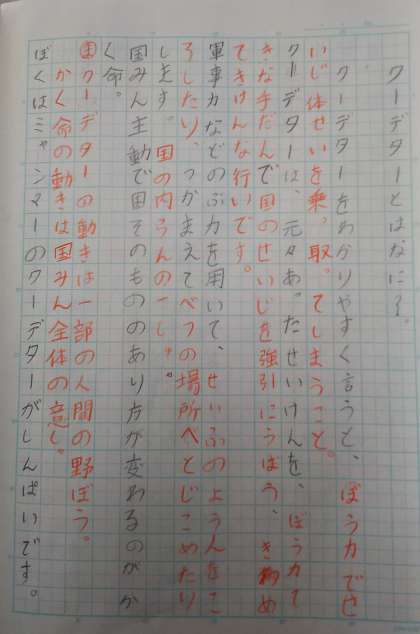 クーデターとはなに？
クーデターをわかりやすく言うと、ぼう力でせ
いじ体せいを乗っ取ってしまうこと。
クーデターは、元々あったせいけんを、ぼう力て
きな手だんで国のせいじを強引にうばう、きわめ
てきけんな行いです。
軍事力などのぶ力を用いて、せいふのようんをこ
ろしたり、つかまえてべつの場所へとじこめたり
します。国の内らんの一し。
国みん主動で国そのもののあり方が変わるのがか
く命。
クーデターの動きは一部の人間の野ぼう。
かく命の動きは国みん全体の意し。
ぼくはミャンマーのクーデターがしんぱいです。